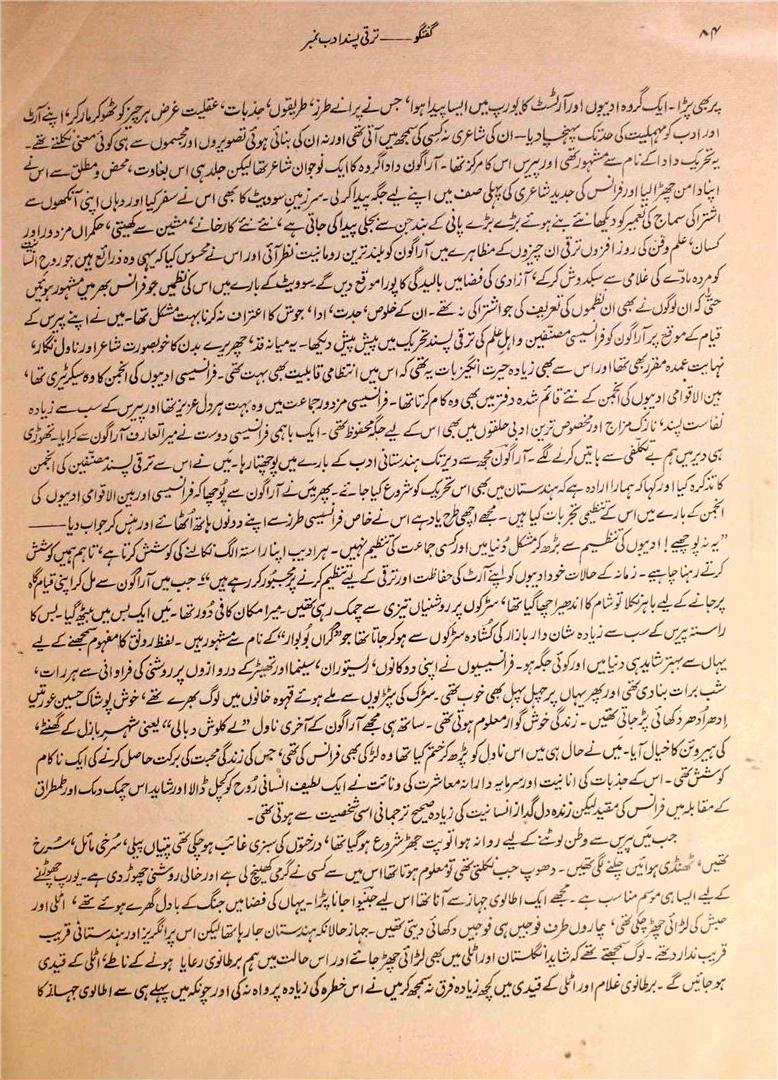 ۸۴
گفتگو —— ترقی پسند ادب نمبر
پر بھی پڑا۔ ایک گروہ ادیبوں اور آرٹسٹ کا یورپ میں ایسا پیدا ہوا، جس نے پرانے طرز، طریقوں، جذبات، عقلیت غرض ہر چیز کو ٹھوکر مار کر، اپنے آرٹ
اور ادب کو مہملیت کی حد تک پہنچا دیا — ان کی شاعری نہ کسی کی سمجھ میں آتی تھی اور نہ ان کی بنائی ہوئی تصویروں اور مجسموں سے ہی کوئی معنی نکلتے تھے۔
یہ تحریک دادا کے نام سے مشہور تھی اور پیرس اس کا مرکز تھا۔ آراگون دادا گروہ کا ایک نوجوان شاعر تھا لیکن جلد ہی اس بغاوت، محض و مطلق سے اس نے
اپنا دامن چھڑا لیا اور فرانس کی جدید شاعری کی پہلی صف میں اپنے لیے جگہ پیدا کر لی۔ سرزمین سوویٹ کا بھی اس نے سفر کیا اور وہاں اپنی آنکھوں سے
اشتراکی سماج کی تعمیر کو دیکھا نئے بنے ہوئے بڑے بڑے پانی کے بند جن سے بجلی پیدا کی جاتی ہے، نئے نئے کارخانے، مشین سے کھیتی، حکمراں مزدور اور
کسان، علم و فن کی روز افزوں ترقی ان چیزوں کے مظاہرے میں آراگون کو بلند ترین رومانیت نظر آئی اور اس نے محسوس کیا کہ یہی وہ ذرائع ہیں جو روح انسانیت
کو مردہ مادّے کی غلامی سے سبکدوش کر کے، آزادی کی فضا میں بالیدگی کا پورا موقع دیں گے۔ سوویٹ کے بارے میں اس کی نظمیں جو فرانس بھر میں مشہور ہوئیں
حتیٰ کہ ان لوگوں نے بھی ان نظموں کی تعریف کی جو اشتراکی نہ تھے۔ ان کے خلوص، جدت، ادا، جوش کا اعتراف نہ کرنا بہت مشکل تھا۔ میں نے اپنے پیرس کے
قیام کے موقع پر آراگون کو فرانسیسی مصنفین و اہلِ علم کی ترقی پسند تحریک میں پیش پیش دیکھا۔ یہ میانہ قد، چھریرے بدن کا خوبصورت شاعر اور ناول نگار،
نہایت عمدہ مقرر بھی تھا اور اس سے بھی زیادہ حیرت انگیز بات یہ تھی کہ اس میں انتظامی قابلیت بھی بہت تھی۔ فرانسیسی ادیبوں کی انجمن کا وہ سیکرٹیری تھا،
بین الاقوامی ادیبوں کی انجمن کے نئے قائم شدہ دفتر میں بھی وہ کام کرتا تھا۔ فرانسیسی مزدور جماعت میں وہ بہت ہر دل عزیز تھا اور پیرس کے سب سے زیادہ
نفاست پسند، نازک مزاج اور مخصوص ترین ادبی حلقوں میں بھی اس کے لیے جگہ محفوظ تھی۔ ایک باہمی فرانسیسی دوست نے میرا تعارف آراگون سے کرایا۔ تھوڑی
ہی دیر میں ہم بے تکلفی سے باتیں کرنے لگے۔ آراگون مجھ سے دیر تک ہندستانی ادب کے بارے میں پوچھتا رہا۔ میں نے اس سے ترقی پسند مصنفین کی انجمن
کا تذکرہ کیا اور کہا کہ ہمارا ارادہ ہے کہ ہندستان میں بھی اس تحریک کو شروع کیا جائے۔ پھر میں نے آراگون سے پُوچھا کہ فرانسیسی اور بین الاقوامی ادیبوں کی
انجمن کے بارے میں اس کے تنظیمی تجربات کیا ہیں۔ مجھے اچھی طرح یاد ہے اس نے خاص فرانسیسی طرز سے اپنے دونوں ہاتھ اُٹھائے اور ہنس کر جواب دیا ——
”یہ نہ پوچھیے! ادیبوں کی تنظیم سے بڑھ کر مشکل دُنیا میں اور کسی جماعت کی تنظیم نہیں۔ ہر ادیب اپنا راستہ الگ نکالنے کی کوشش کرتا ہے، تاہم ہمیں کوشش
کرتے رہنا چاہیے۔ زمانہ کے حالات خود ادیبوں کو اپنے آرٹ کی حفاظت اور ترقی کے لیے تنظیم کرنے پر مجبور کر رہے ہیں“۔ جب میں آراگون سے مل کر اپنی قیام گاہ
پر جانے کے لیے باہر نکلا تو شام کا اندھیرا چھا گیا تھا، سڑکوں پر روشنیاں تیزی سے چمک رہی تھیں۔ میرا مکان کافی دُور تھا۔ میں ایک بس میں بیٹھ گیا۔ بس کا
راستہ پیرس کے سب سے زیادہ شان دار بازار کی کشادہ سڑکوں سے ہو کر جاتا تھا جو ”گراں بُولوار“ کے نام سے مشہور ہیں۔ لفظ رونق کا مفہوم سمجھنے کے لیے
یہاں سے بہتر شاید ہی دنیا میں اور کوئی جگہ ہو۔ فرانسیسیوں نے اپنی دوکانوں، رستوران، سینما اور تھیٹر کے دروازوں پر روشنی کی فراوانی سے ہر رات،
شب برات بنا دی تھی اور پھر یہاں پر چہل پہل بھی خوب تھی۔ سڑک کی پٹڑیوں سے ملے ہوئے قہوہ خانوں میں لوگ بھرے تھے، خوش پوشاک حسین عورتیں
اِدھر اُدھر دکھائی پڑ جاتی تھیں۔ زندگی خوش گوار معلوم ہوتی تھی۔ ساتھ ہی مجھے آراگون کے آخری ناول ”لے کلوش دبالی“ یعنی شہر بازل کے گھنٹے،
کی ہیروئن کا خیال آیا۔ میں نے حال ہی میں اس ناول کو پڑھ کر ختم کیا تھا وہ لڑکی بھی فرانس کی تھی، جس کی زندگی محبت کی برکت حاصل کرنے کی ایک ناکام
کوشش تھی۔ اس کے جذبات کی انانیت اور سرمایہ دارانہ معاشرت کی دنائت نے ایک لطیف انسانی رُوح کو کچل ڈالا اور شاید اس چمک دمک اور طمطراق
کے مقابلہ میں فرانس کی مقید لیکن زندہ دل گداز انسانیت کی زیادہ صحیح ترجمانی اسی شخصیت سے ہوتی تھی۔
جب میں پیرس سے وطن لوٹنے کے لیے روانہ ہوا تو پت جھڑ شروع ہو گیا تھا، درختوں کی سبزی غائب ہو چکی تھی پتیاں پیلی، سُرخی مائل، سُرخ
تھیں، ٹھنڈی ہوائیں چلنے لگی تھیں۔ دھوپ جب نکلتی تھی تو معلوم ہوتا تھا اس میں سے کسی نے گرمی کھینچ لی ہے اور خالی روشنی چھوڑ دی ہے۔ یورپ چھوڑنے
کے لیے ایسا ہی موسم مناسب ہے۔ مجھے ایک اطالوی جہاز سے آنا تھا اس لیے جنیوا جانا پڑا۔ یہاں کی فضا میں جنگ کے بادل گھرے ہوئے تھے، اٹلی اور
حبش کی لڑائی چھڑ چکی تھی، چاروں طرف فوجیں ہی فوجیں دکھائی دیتی تھیں۔ جہاز حالانکہ ہندستان جا رہا تھا لیکن اس پر انگریز اور ہندستانی قریب
قریب ندارد تھے۔ لوگ سمجھتے تھے کہ شاید انگلستان اور اٹلی میں بھی لڑائی چھڑ جائے اور اس حالت میں ہم برطانوی رعایا ہونے کے ناطے، اٹلی کے قیدی
ہو جائیں گے۔ برطانوی غلام اور اٹلی کے قیدی میں کچھ زیادہ فرق نہ سمجھ کر میں نے اس خطرہ کی زیادہ پرواہ نہ کی اور چونکہ میں پہلے ہی سے اطالوی جہاز کا